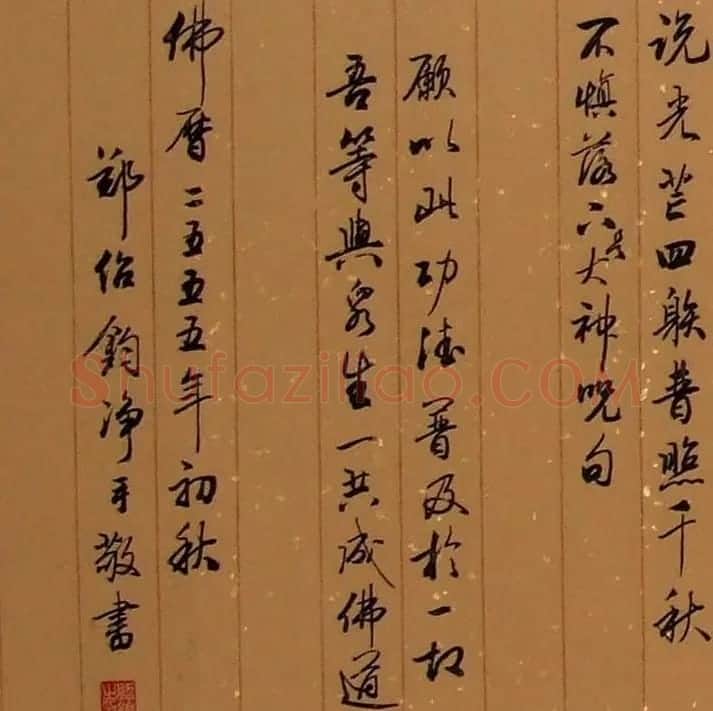 说光芒四射普照千秋
不慎落下是大神咒句
願以此功德普及於一切
吾等與眾生一共成佛道
佛暦二五五五年初秋
鄭鈞净手敬書